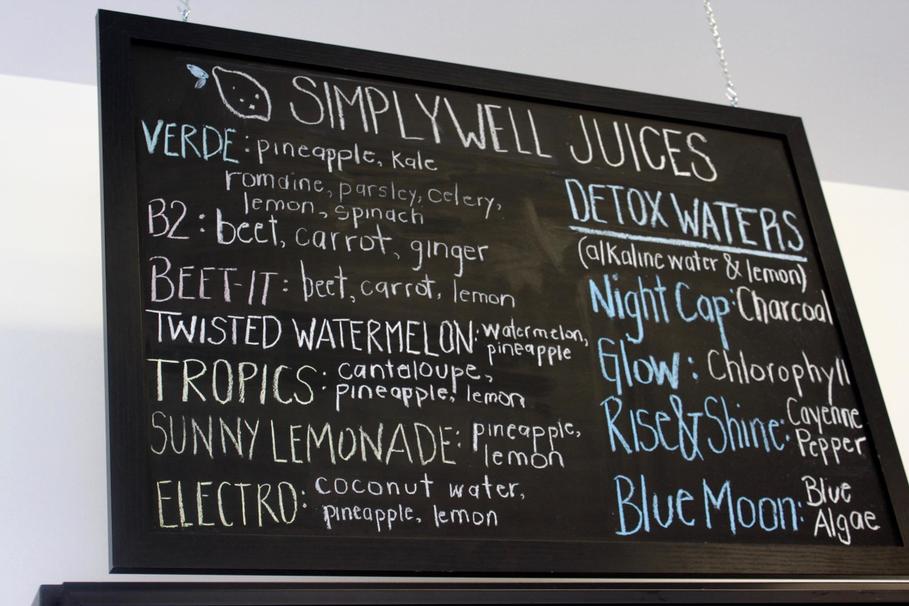 SIMPLYWELL JUICES
VERDE: pineapple, kale
romaine, parsley, celery,
lemon, spinach
B2: beet, carrot, ginger
BEET-IT: beet, carrot, lemon
TWISTED WATERMELON: watermelon,
pineapple
TROPICS: canteloupe,
pineapple, lemon
SUNNY LEMONADE: pineapple,
lemon
ELECTRO: coconut water,
pineapple, lemon
DETOX WATERS
(alkaline water & lemon)
Night Cap: Charcoal
Glow: Chlorophyll
Rise & Shine: Cayenne
Pepper
Blue Moon: Blue
Algae